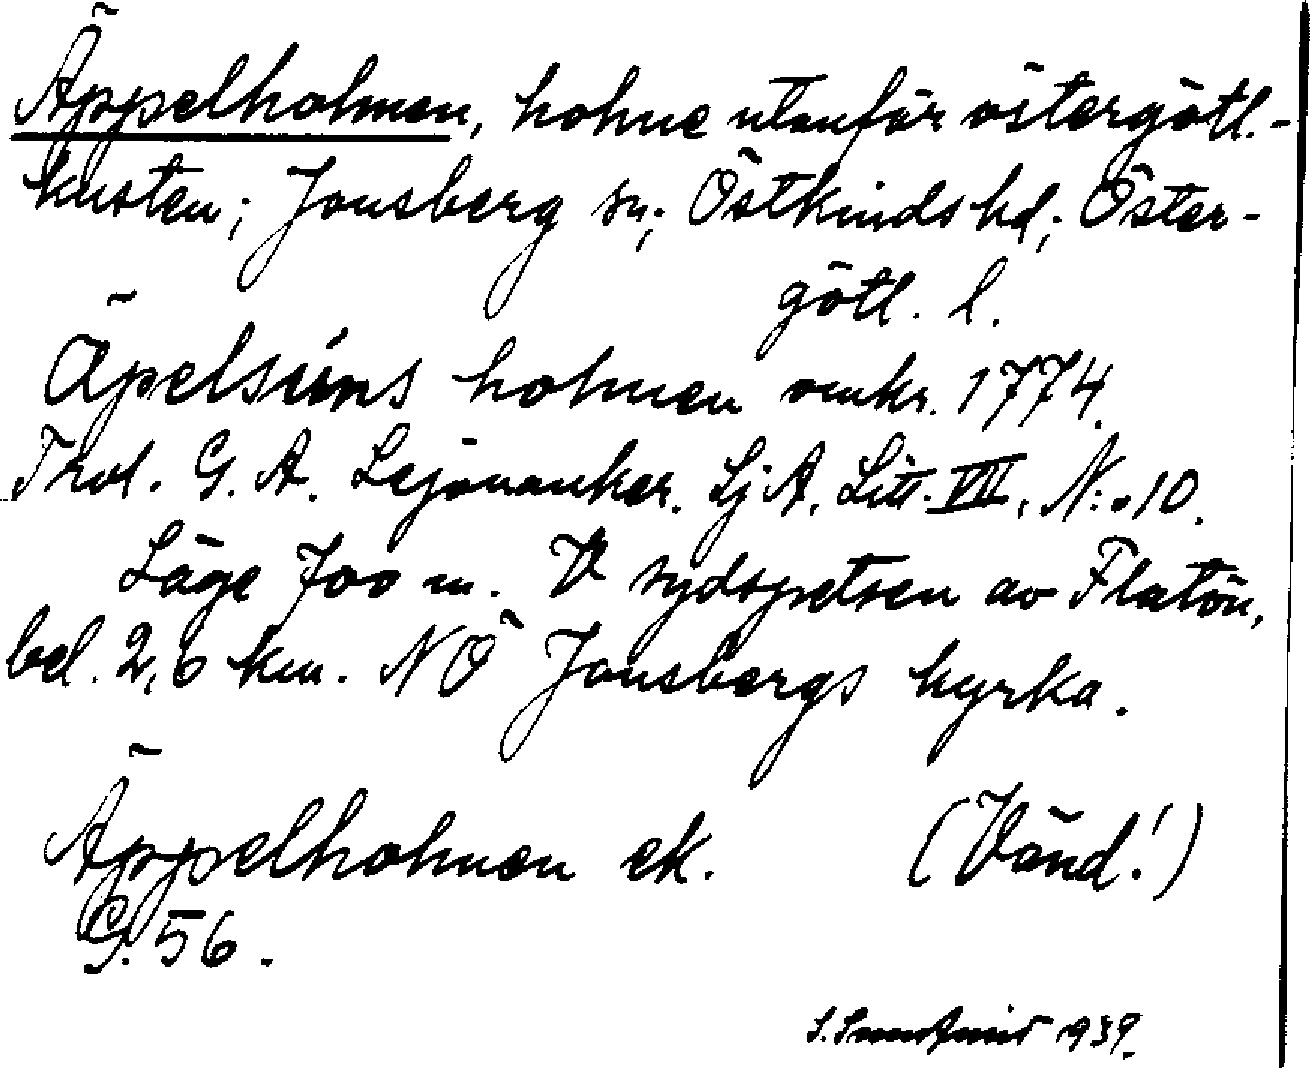 Äppelholmen, holme utanför östergötl.-
kusten; Jonsberg sn; Östkinds hd; Öster-
götl. l.
Äpelseins holmen omkr. 1774.
Trol. G. A. Lejonanker. Lj A. Litt. VII, N:o 10.
Läge 700 m. V sydspetsen av Flatön,
bel. 2,6 km. NÖ Jonsbergs kyrka.
Äppelholmen ek. (Vänd!)
G. 56.
1939.